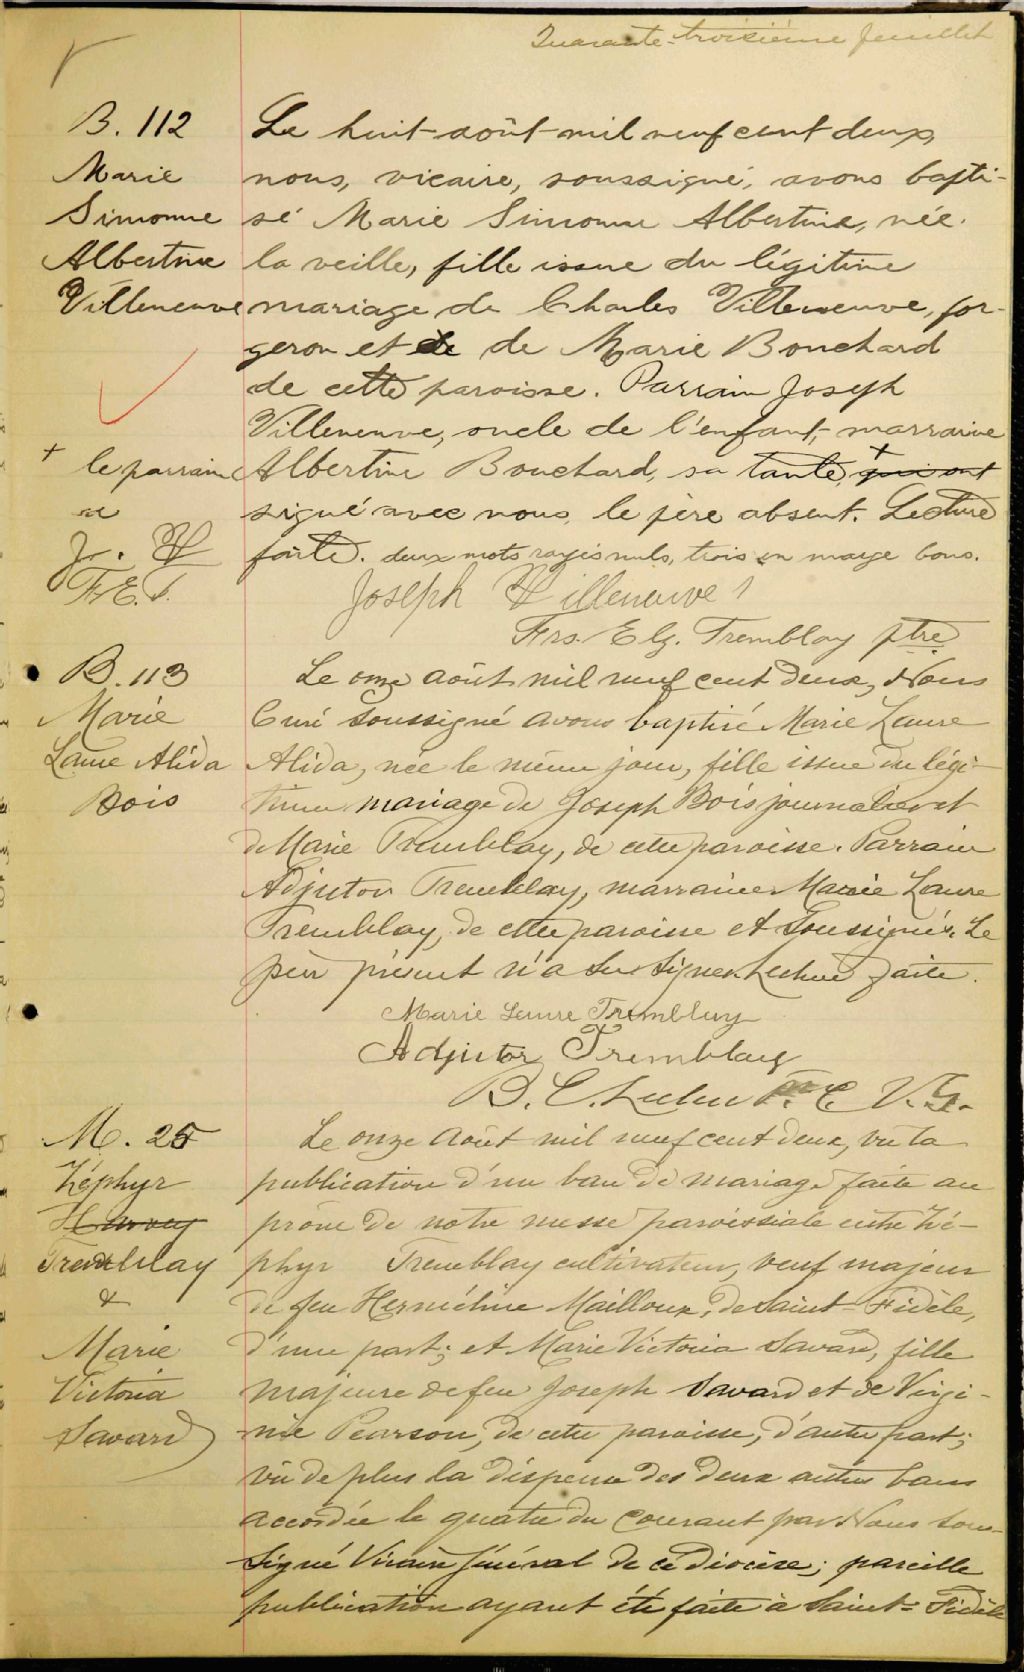 Quarante-troisième feuillet
B. 112
Marie
Simonne
Albertine
Villeneuve
+ le parrain
a
J. V
F.E.T.
Le huit août mil neuf cent deux,
nous, vicaire, soussigné, avons bapti-
sé Marie Simonne Albertine, née
la veille, fille issue du légitime
mariage de Charles Villeneuve, for-
geron et de de Marie Bouchard
de cette paroisse. Parrain Joseph
Villeneuve, oncle de l'enfant, marraine
Albertine Bouchard, sa tante, + qui ont
signé avec nous, le père absent. Lecture
faite. deux mots rayés nuls, trois en marge bons.
Joseph Villeneuve
Frs. Elz. Tremblay ptre
B. 113
Marie
Laure Alida
Bois
Le onze août mil neuf cent deux, Nous
Curé soussigné avons baptisé Marie Laure
Alida, née le même jour, fille issue du légi-
time mariage de Joseph Bois journalier et
de Marie Tremblay, de cette paroisse. Parrain
Adjutor Tremblay, marraine Marie Laure
Tremblay, de cette paroisse et soussignés. Le
père présent n'a su signer. Lecture faite.
Marie Laure Tremblay
Adjutor Tremblay
B. C. V. G.
M. 25
Zéphyr
Harvey
Tremblay
&
Marie
Victoria
Savard
Le onze août mil neuf cent deux, vu la
publication d'un ban de mariage faite au
prône de notre messe paroissiale entre Zé-
phyr Tremblay cultivateur, veuf majeur
de feu Herméline Mailloux, de Saint-Fidèle,
d'une part; et Marie Victoria Savard, fille
majeure de feu Joseph Savard et de Virgi-
nie Pearson, de cette paroisse, d'autre part;
vu de plus la dispense des deux autres bans
accordée le quatre du courant par Nous sous-
signé Vicaire Général de ce diocèse; pareille
publication ayant été faite à Saint-Fidèle